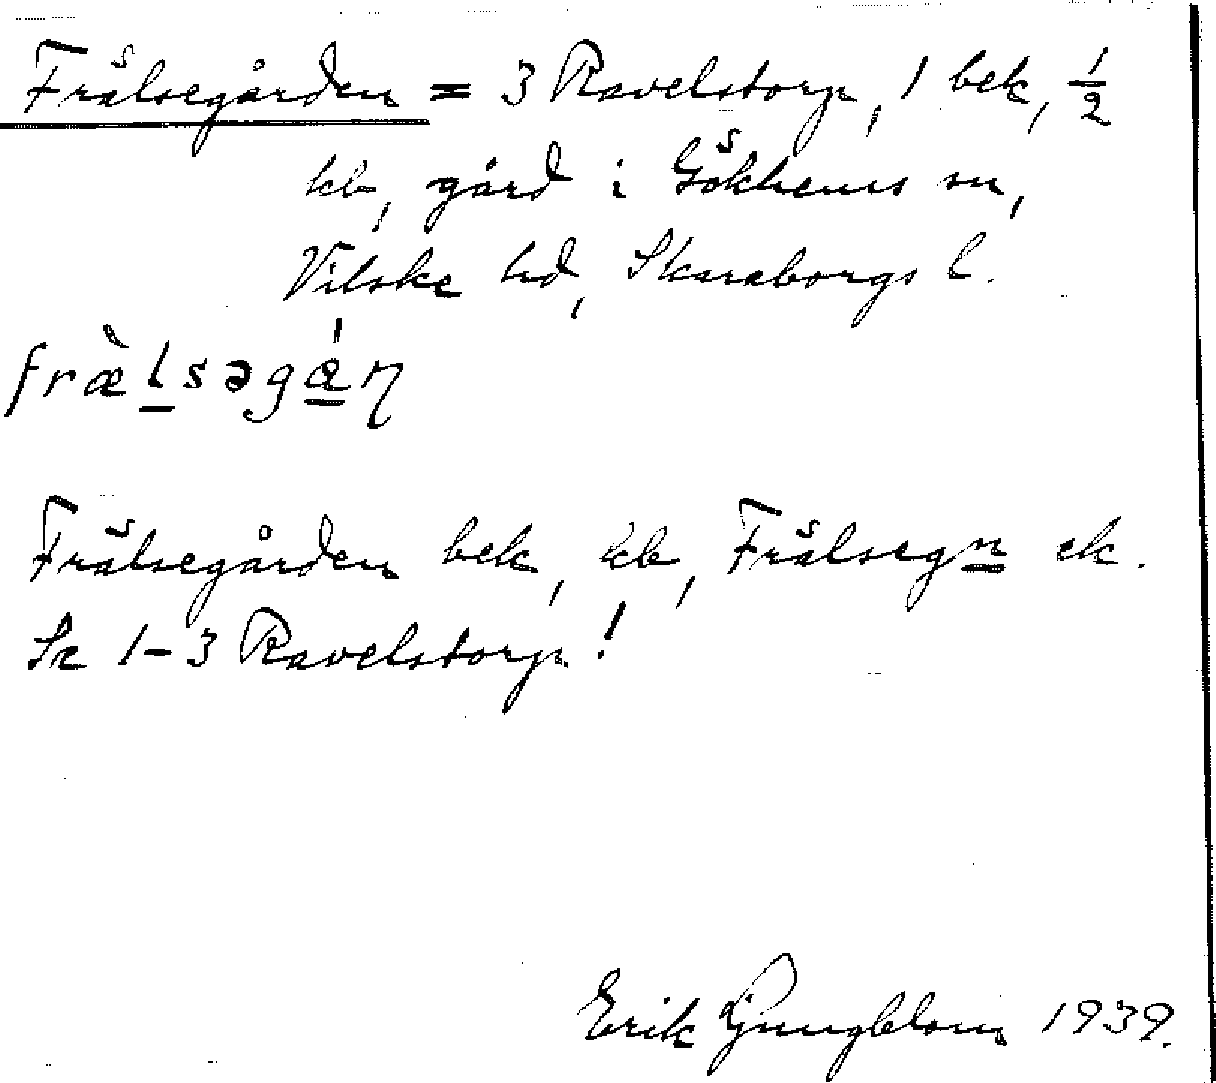 Frälsegården = 3 Ravelstorp, 1 bek, 1/2
kb, gård i Gökhems sn,
Vilske hd, Skaraborgs l.
fræ̀lsəgá̊n
Frälsegården bek, kb, Frälsegn ek.
Se 1-3 Ravelstorp!
Erik Ljungblom 1939.